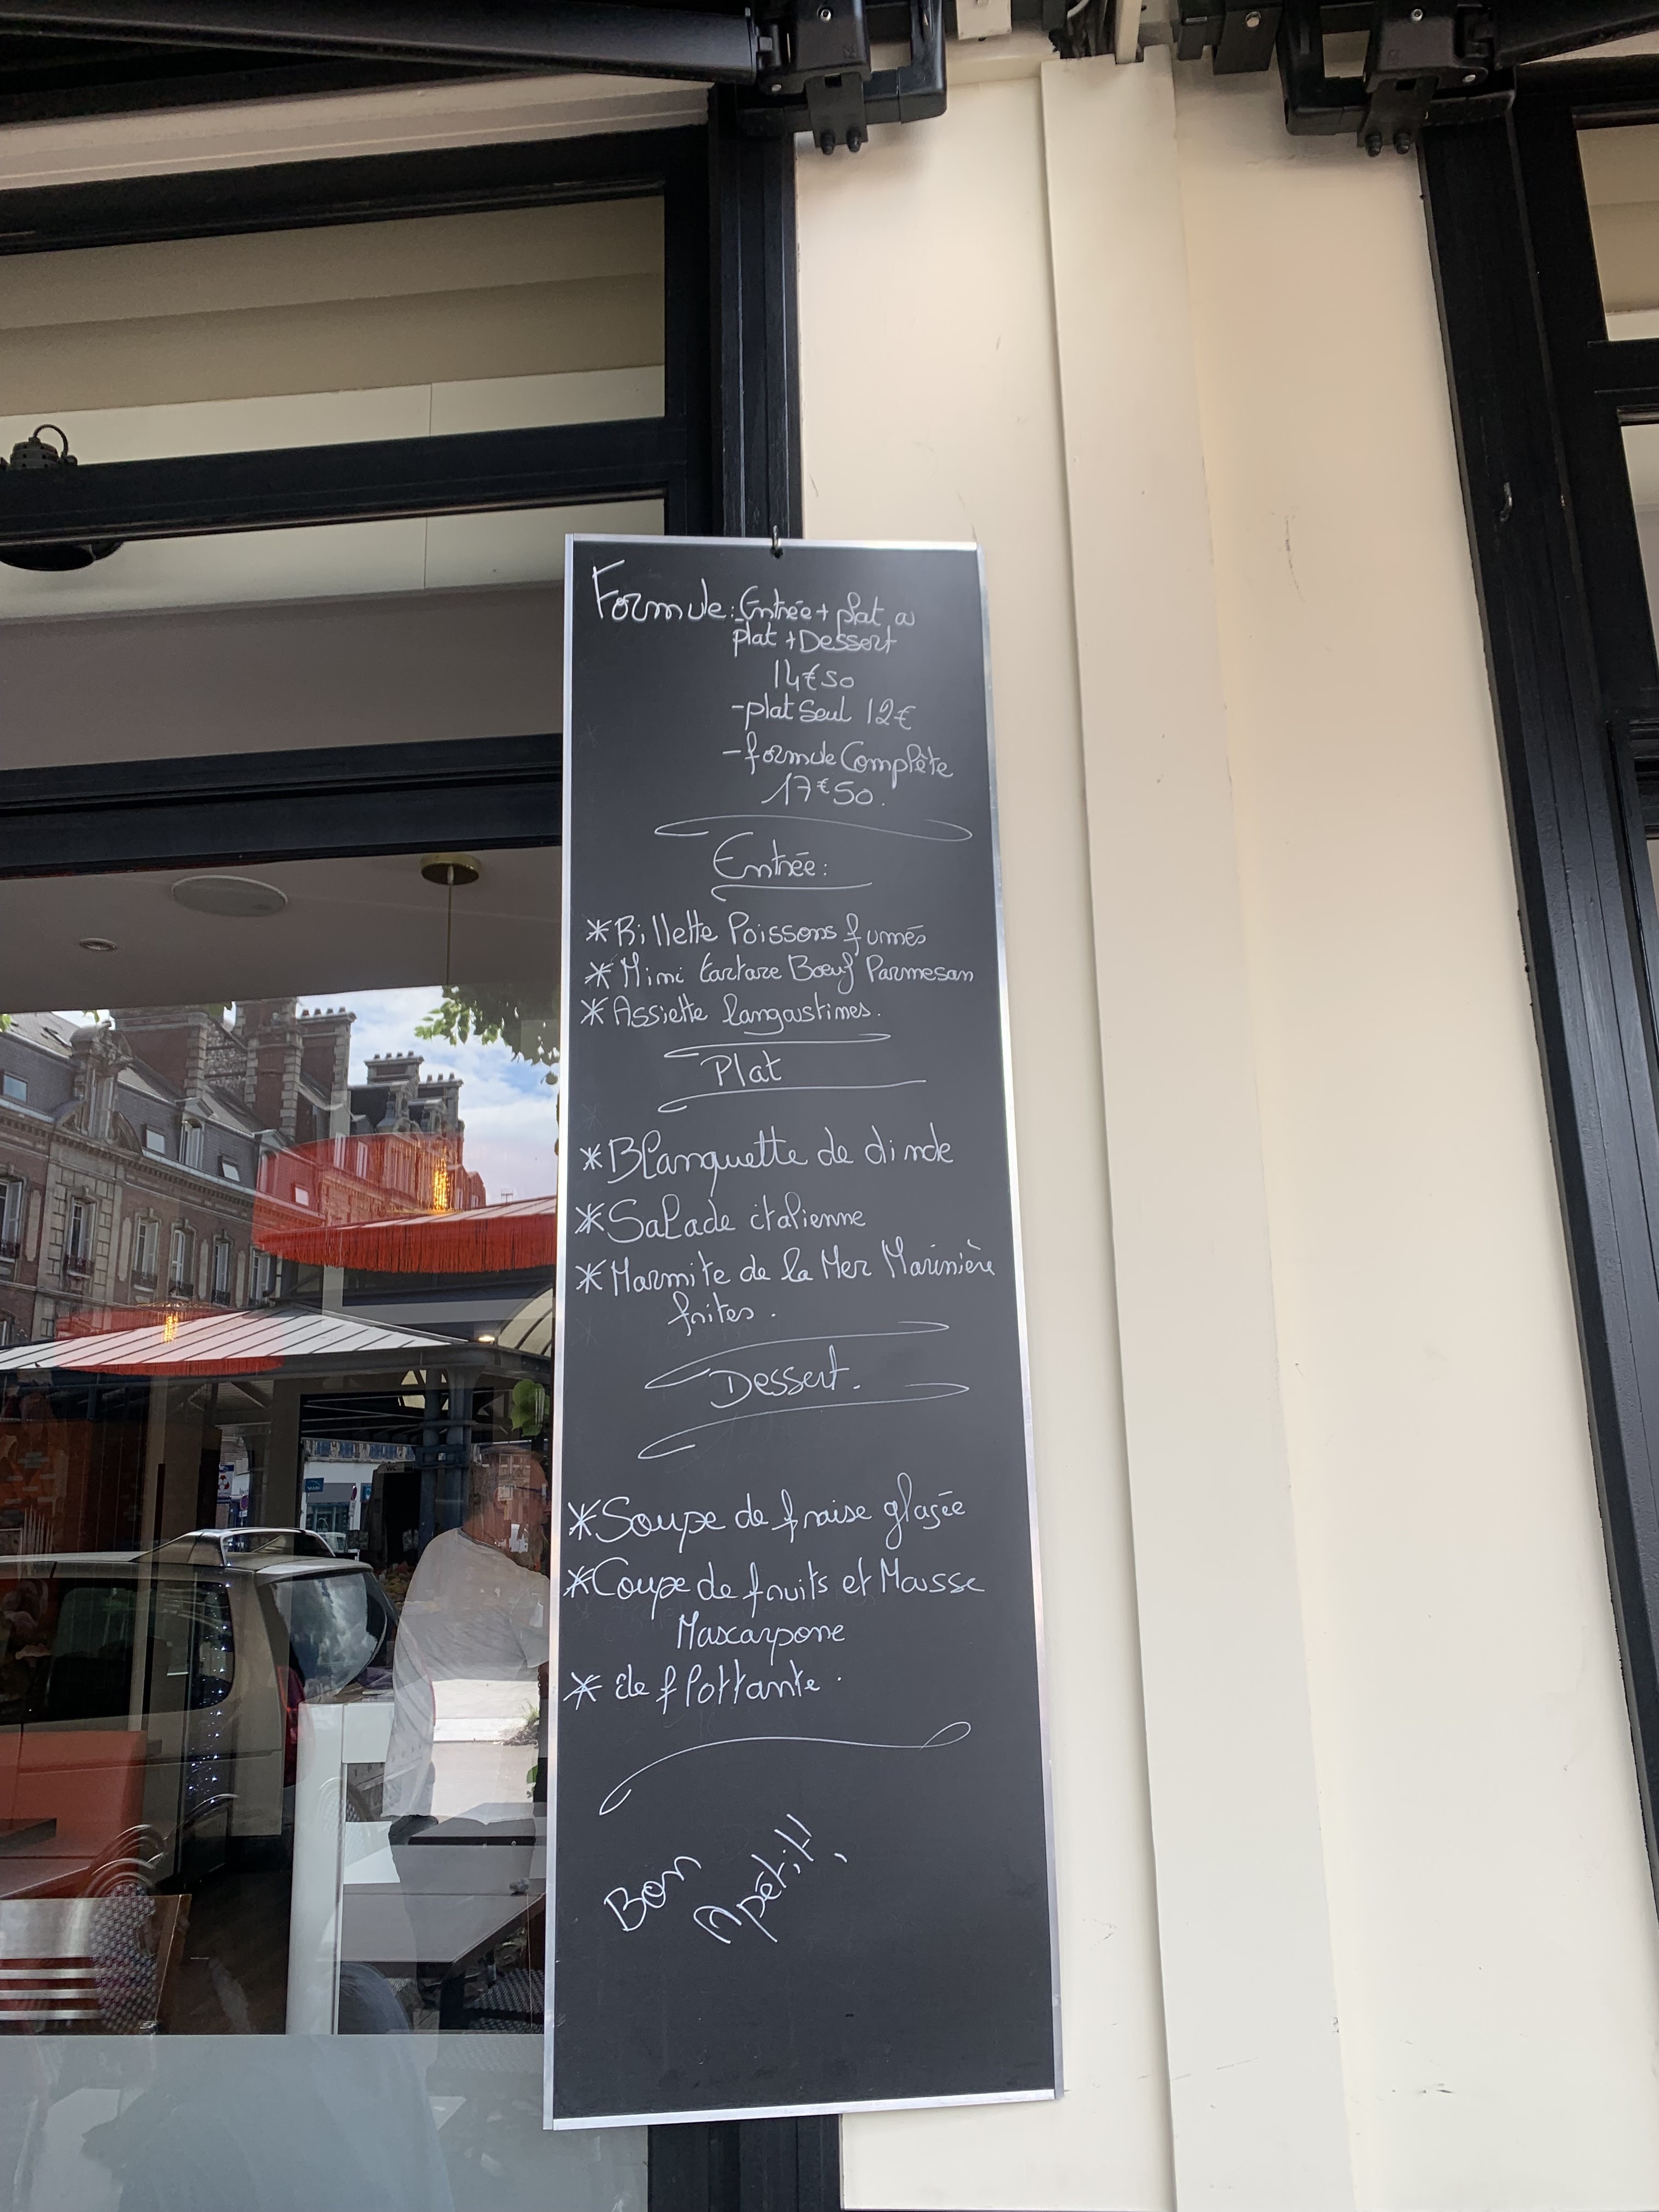 Formule: Entrée + plat ou
plat + Dessert
14€50
-plat seul 12€
-formule Complète
17€50.
Entrée:
*Rillette Poissons fumés
*Mini tartare Bœuf Parmesan
*Assiette langoustines.
Plat
*Blanquette de dinde
*Salade italienne
*Marmite de la Mer Marinière
frites.
Dessert.
*Soupe de fraise glasée
*Coupe de fruits et Mousse
Mascarpone
*île flottante.
Bon
Apétit!